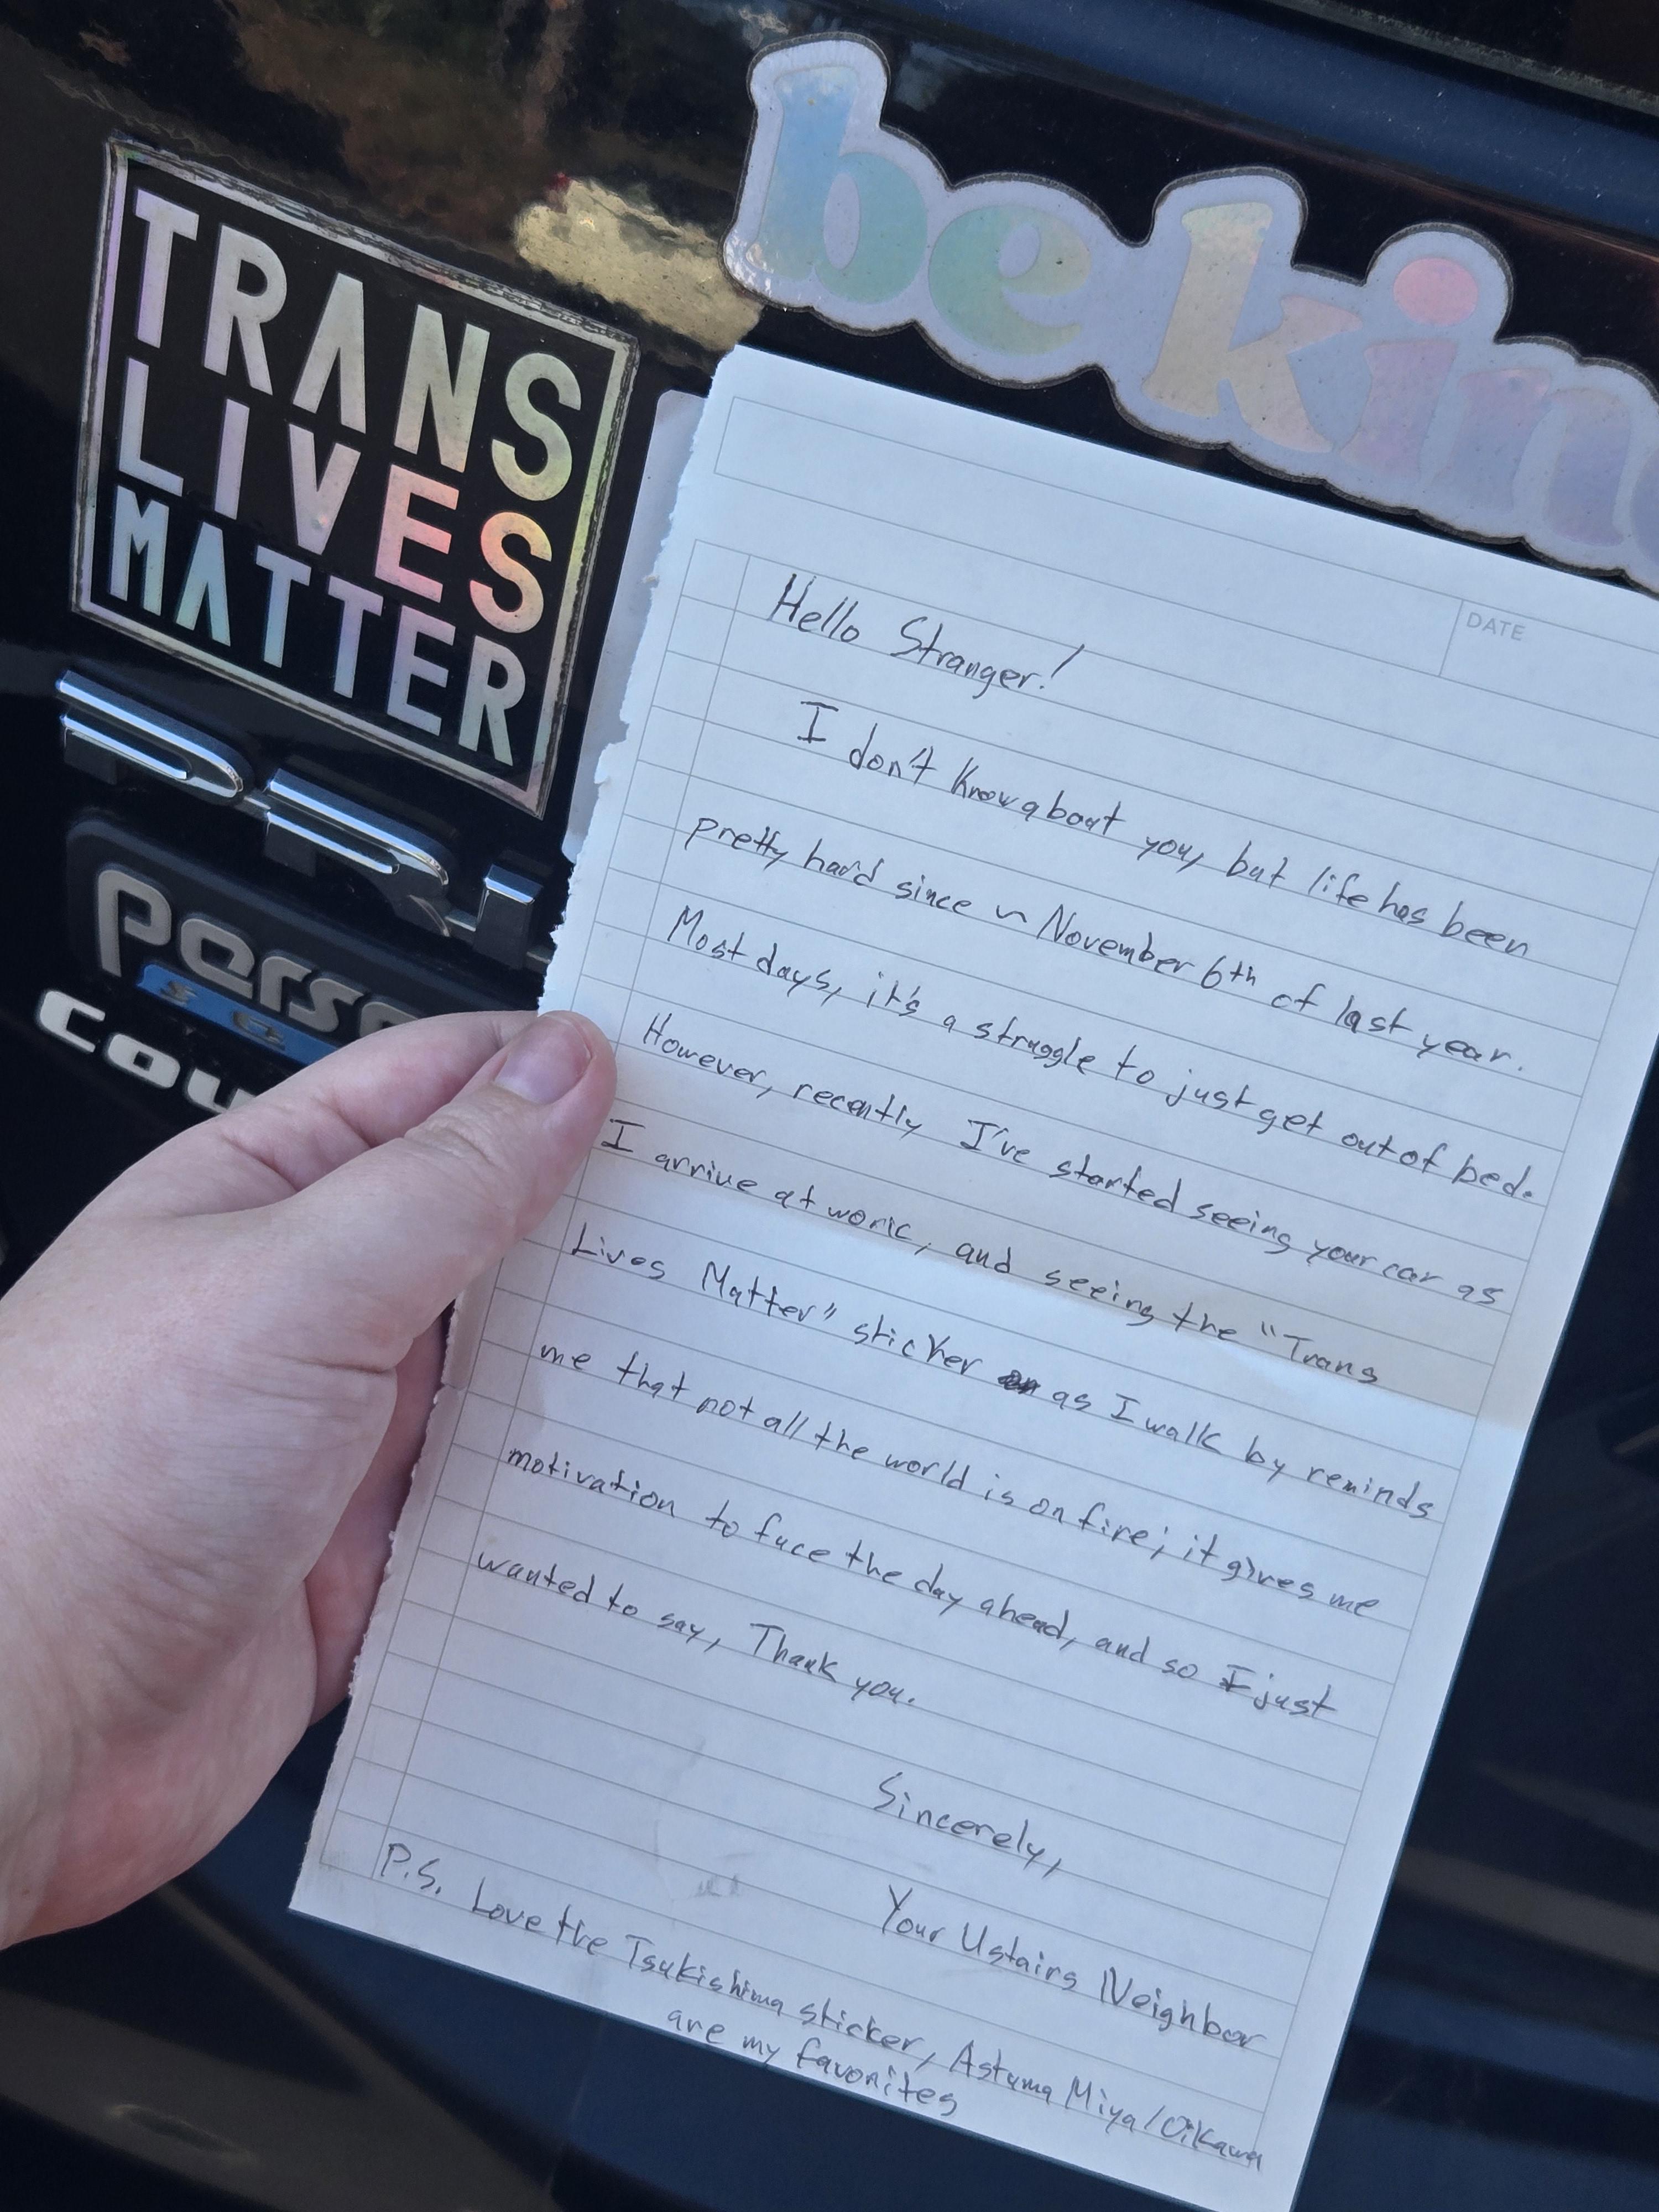 TRANS
LIVES
MATTER
be kin
DATE
Hello Stranger!
I don't know about you, but life has been
pretty hard since November 6th of last year.
Most days, it's a struggle to just get out of bed.
However, recently I've started seeing your car as
I arrive at work, and seeing the "Trans
Lives Matter" sticker as I walk by reminds
me that not all the world is on fire; it gives me
motivation to face the day ahead, and so I just
wanted to say, Thank you.
Sincerely,
Your Ustairs Neighbor
P.S. Love the Tsukishima sticker, Astuma Miya/Oikawa
are my favorites
perso
cou